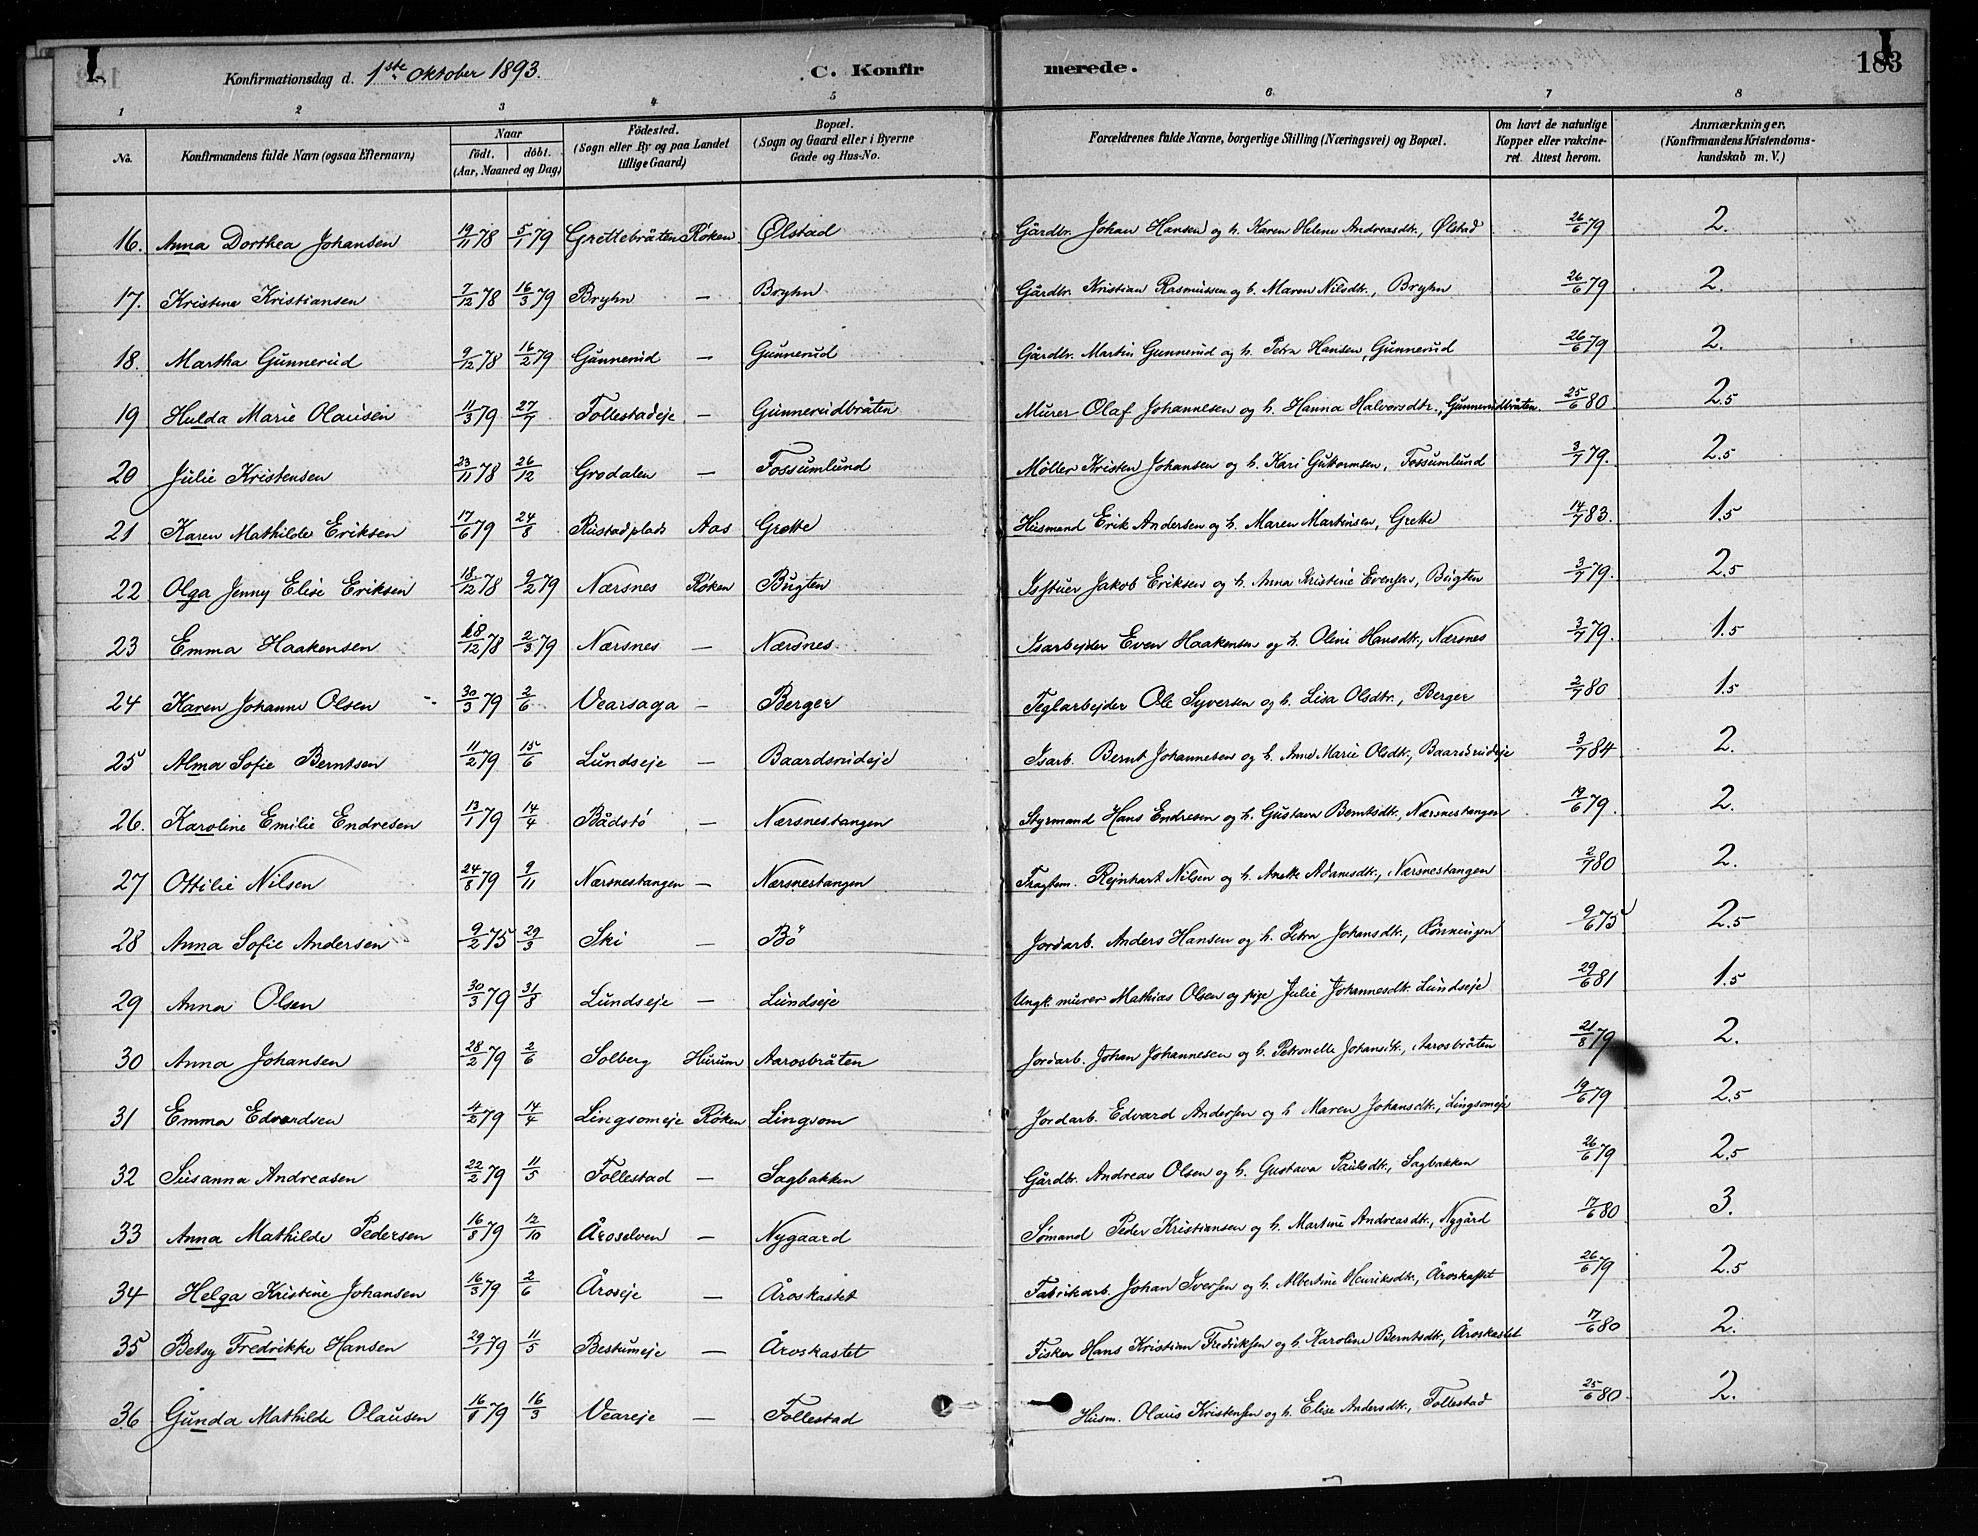 Konfirmationsdag d. 1ste Oktober 1893. C. Konfirmerede. 183
1 2 3 4 5 6 7 8
No. Konfirmandens fulde Navn (ogsaa Efternavn) Naar født, døbt. (Aar, Maaned og Dag) Fødested. (Sogn eller By og paa Landet tillige Gaard) Bopæl. (Sogn og Gaard eller i Byerne Gade og Hus-No. Forældrenes fulde Navne, borgerlige Stilling (Næringsvei) og Bopæl. Om havt de naturlige Kopper eller vakcineret. Attest herom. Anmærkninger, (Konfirmandens Kristendomskundskab m. V.)
16. Anna Dorthea Johansen 19/11 78 5/1 79 Grettebråten Røken Ølstad Gårdbr. Johan Hansen og h. Karen Helene Andreasdtr., Ølstad 26/6 79 2.
17. Kristine Kristiansen 7/12 78 16/3 79 Bryhn — Bryhn Gårdbr. Kristian Rasmussen og h. Maren Nilsdtr., Bryhn 26/6 79 2.
18. Martha Gunnerud 9/12 78 16/2 79 Gunnerud — Gunnerud Gårdbr. Martin Gunnerud og h. Petra Hansen, Gunnerud 26/6 79 2.
19 Hulda Marie Olausen 11/3 79 27/7 Follestadeje — Gunnerudbråten Murer Olaf Johannesen og h. Hanna Halvorsdtr., Gunnerudbråten. 25/6 80 2.5
20 Julie Kristensen 23/11 78 26/12 Grodalen — Fossumlund Møller Kristen Johansen og h. Kari Guttormsen, Fossumlund 3/7 79. 2.5
21 Karen Mathilde Eriksen 17/6 79 24/8 Rustadplads Aas Grette Husmand Erik Andersen og h. Maren Martinsen, Grette 14/7 83. 1.5
22 Olga Jenny Elise Eriksen 18/12 78 9/2 79 Nærsnes Røken Bugten Isstuer Jakob Eriksen og h. Anna Kristine Evensen, Bugten 3/7 79. 2.5
23 Emma Haakensen 18/12 78 2/3 79 Nærsnes — Nærsnes Isarbejder Even Haakensen og h. Oline Hansdtr., Nærsnes 3/7 79. 1.5
24 Karen Johanne Olsen 30/3 79 2/6 Vearsaga — Berger Teglarbejder Ole Syversen og h. Lisa Olsdtr., Berger 2/7 80 1.5
25 Alma Sofie Berntsen 11/2 79 15/6 Lundseje — Baardsrudeje Isarb. Bernt Johannesen og h. Anne Marie Olsdtr., Baardsrudeje 3/7 84 2.
26. Karoline Emilie Endresen 13/1 79 14/4 Bådstø — Nærsnestangen Styrmand Hans Endresen og h. Gustava Berntsdtr., Nærsnestangen 19/6 79. 2.
27 Ottilie Nilsen 24/8 79 9/11 Nærsnestangen — Nærsnestangen Fragtem. Rejnhart Nilsen og h. Anette Adamsdtr., Nærsnestangen 2/7 80 2.
28 Anna Sofie Andersen 9/2 75 29/3 Ski — Bö Jordarb. Anders Hansen og h. Petra Johansdtr., Rønningen 9/6 75 2.5
29 Anna Olsen 30/3 79 31/8 Lundseje — Lundseje Ungk. murer Mathias Olsen og pige Julie Johannesdtr. Lundseje 29/6 81 1.5
30 Anna Johansen 28/2 79 2/6 Solberg Hurum Aarosbråten Jordarb. Johan Johannesen og h. Petronelle Johansdtr., Aarosbråten 21/8 79 2.
31 Emma Edvardsen 4/2 79 14/4 Lingsomeje Røken Lingsom Jordarb. Edvard Andersen og h Maren Johansdtr., Lingsomeje 19/6 79 2.5
32 Susanna Andreasen 22/2 79 11/5 Follestad — Sagbakken Gårdbr. Andreas Olsen og h. Gustava Paulsdtr., Sagbakken 26/6 79 2.5
33 Anna Mathilde Pedersen 16/8 79 12/10 Åroselven — Nygaard Sømand Peder Kristiansen og h. Martine Andreasdtr., Nygård 17/6 80 3.
34 Helga Kristine Johansen 16/3 79 2/6 Åroseje — Åroskastet Fabrikarb. Johan Iversen og h. Albertine Henriksdtr., Åroskastet 26/6 79 2.5
35 Betsy Fredrikke Hansen 29/1 79 11/5 Bestumeje — Åroskastet Fisker Hans Kristian Fredriksen og h. Karoline Berntsdtr., Åroskastet 17/6 80 2.
36 Gunda Mathilde Olausen 16/1 79 16/3 Veareje — Follestad Husm. Olaus Kristensen og h. Elise Andersdtr., Follestad 25/6 80 2.